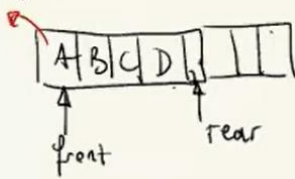 A B C D
front
rear